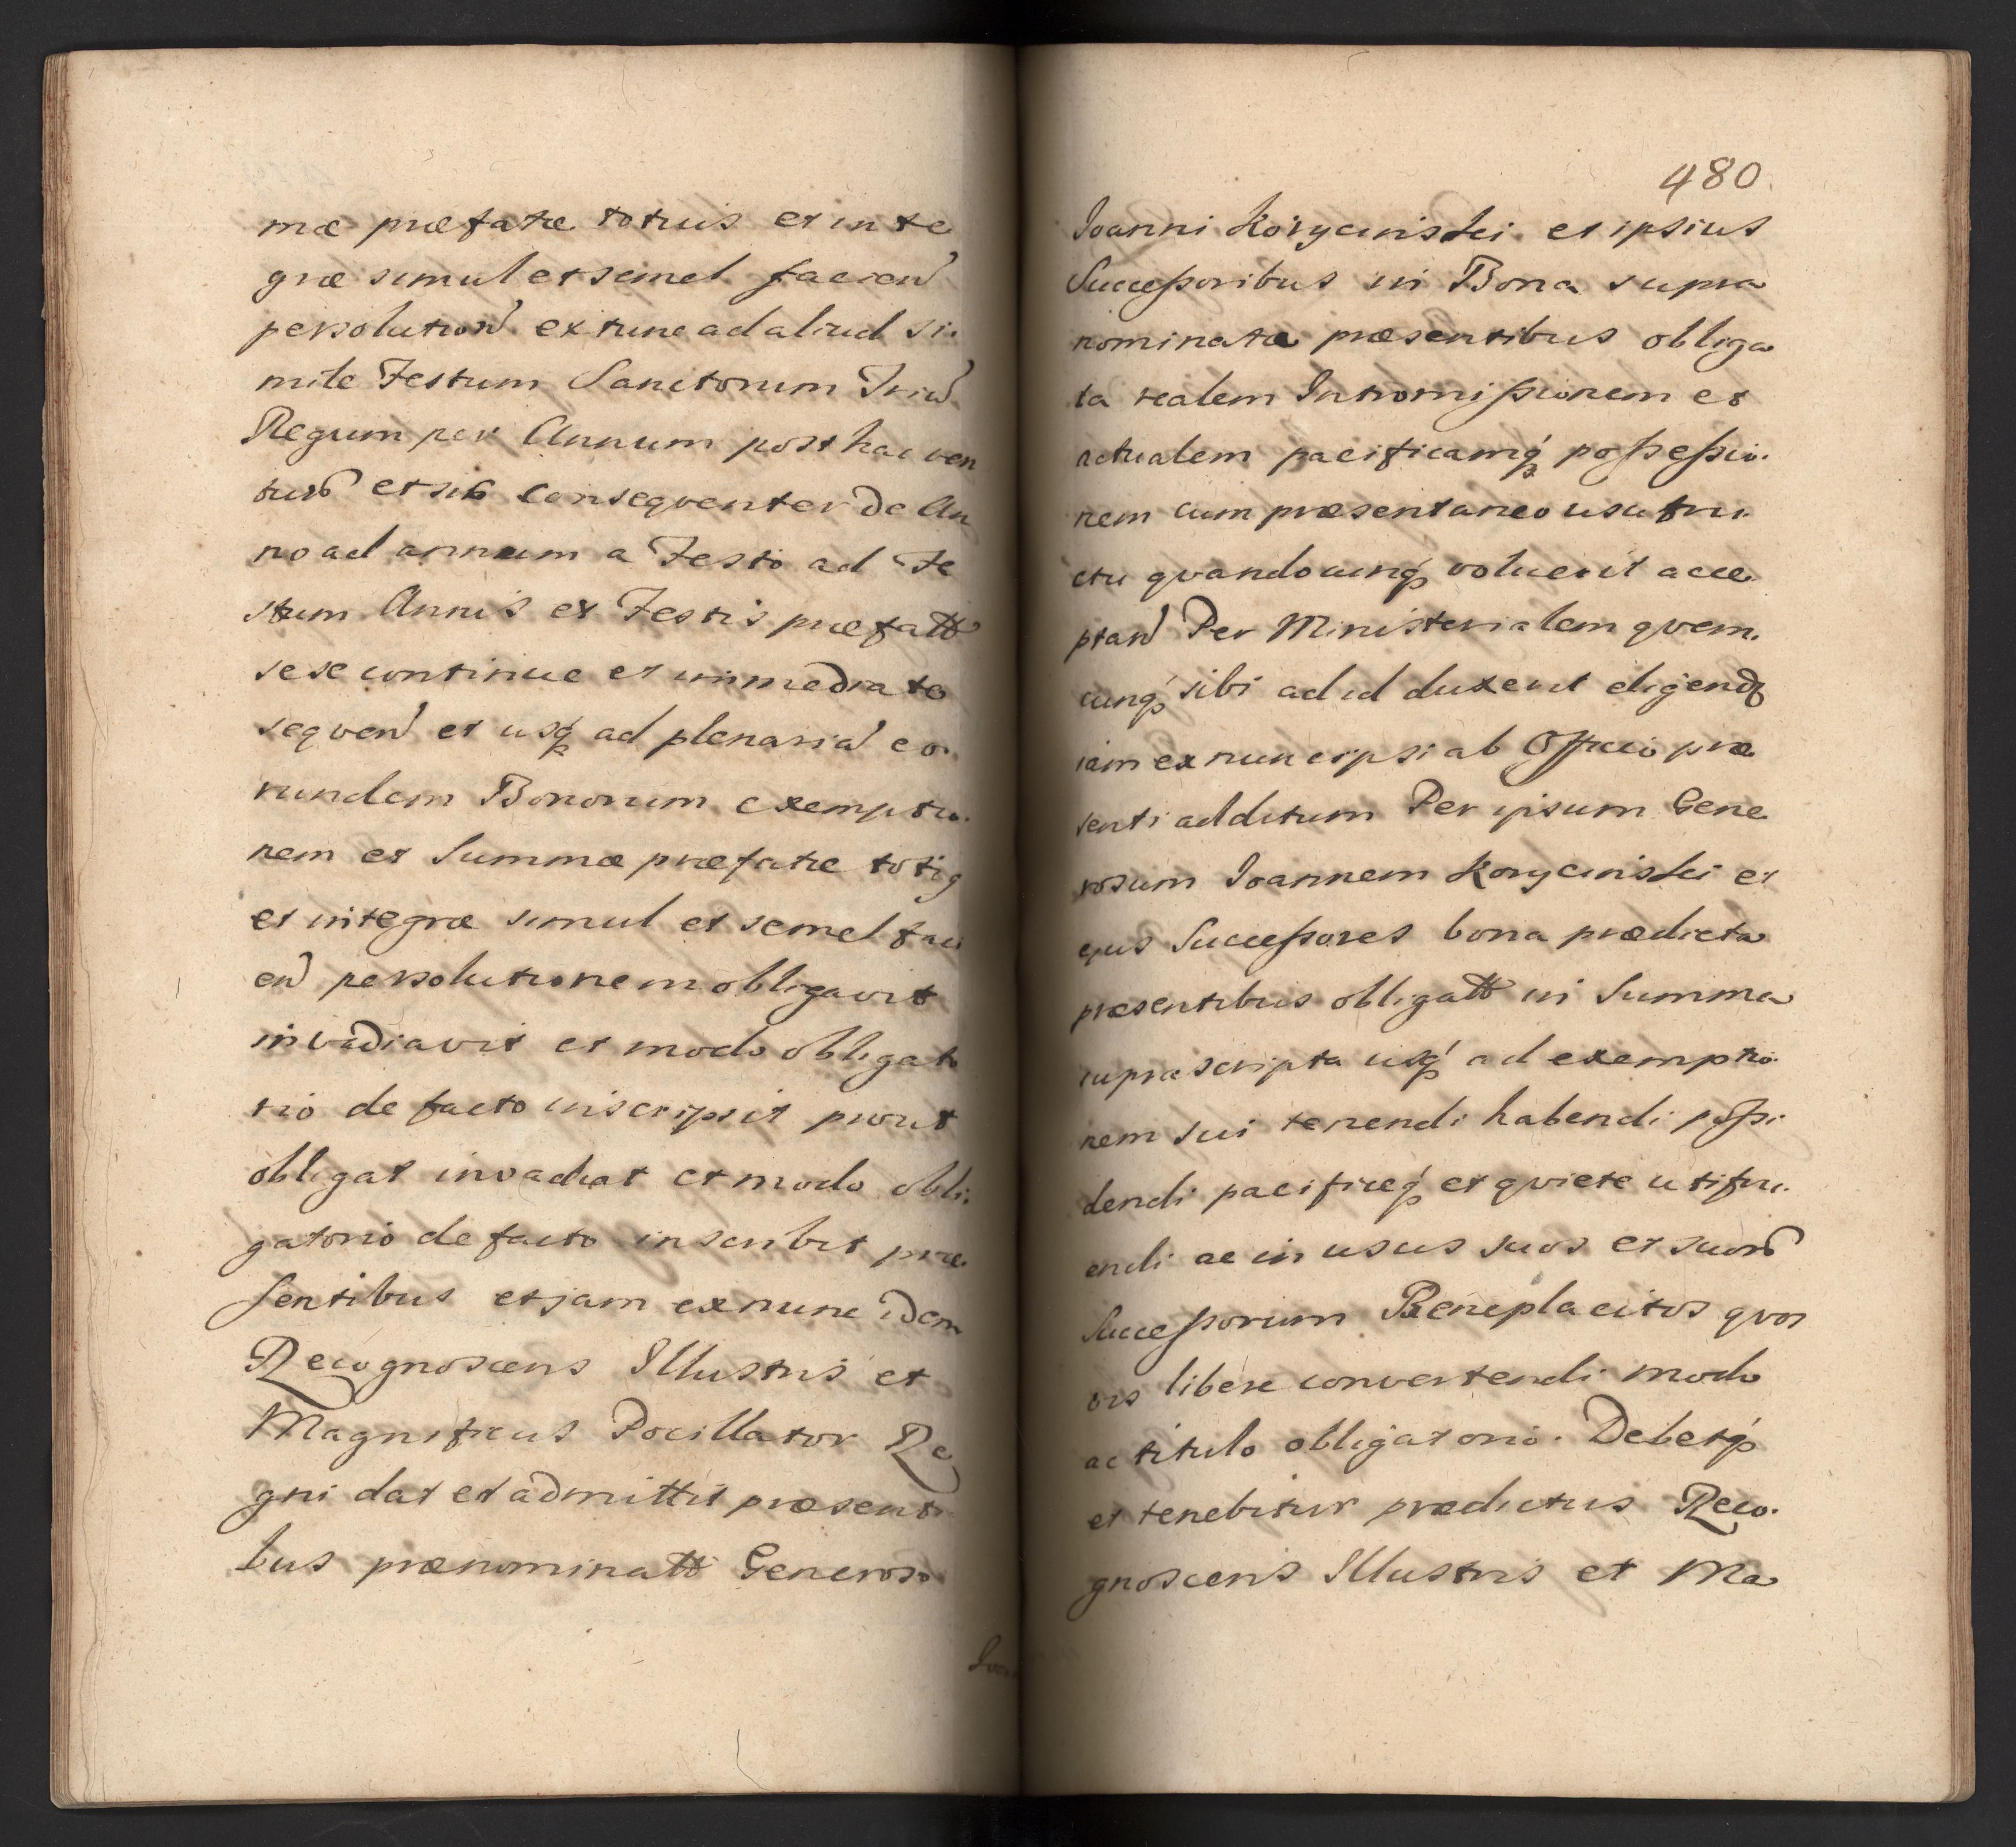 mæ præfatæ totius et inte
græ simul et semel facien
persolution ex tunc ad aliud si-
mile Festum Sanctorum Triu
Regum per Annum post hac ven
tur et sic consequenter de An
no ad annum a Festo ad Fe
stum Annis et Festis præfatt
sese continue et immediate
sequen et usq ad plenaria eo-
rundem Bonorum exemptio-
nem et Summæ præfatæ totiq
et integræ simul et semel faci
en persolutionem obligavit
invadiavit et modo obligato
rio de facto inscripsit prout
obligat invadiat et modo obli-
gatorio de facto inscribit præ-
sentibus et jam exnunc idem
Recognoscens Illustris et
Magnificus Pocillator Re
gni dat et admittit præsenti
bus prænominatt Generoso
Joan
480.
Joanni Korycinski et ipsius
Successoribus in Bona supra
nominata præsentibus obliga
ta realem Intromissionem et
actualem pacificamq possessio-
nem cum præsentaneo usufru-
ctu quandocunq voluerit acce-
ptan Per Ministerialem quem-
cunq sibi ad id duxerit eligend
iam exnunc ipsi ab Officio præ
senti additum Per ipsum Gene
rosum Joannem Korycinski et
ejus Successores bona prædicta
præsentibus obligatt in Summa
supra scripta usq ad exemptio-
nem sui tenendi habendi possi-
dendi pacificeq et quiete utifru-
endi ac in usus suos et suor
Successorum Beneplacitos quos
vis libere convertendi modo
ac titulo obligatorio. Debetq
et tenebitur prædictus Reco-
gnoscens Illustris et Ma